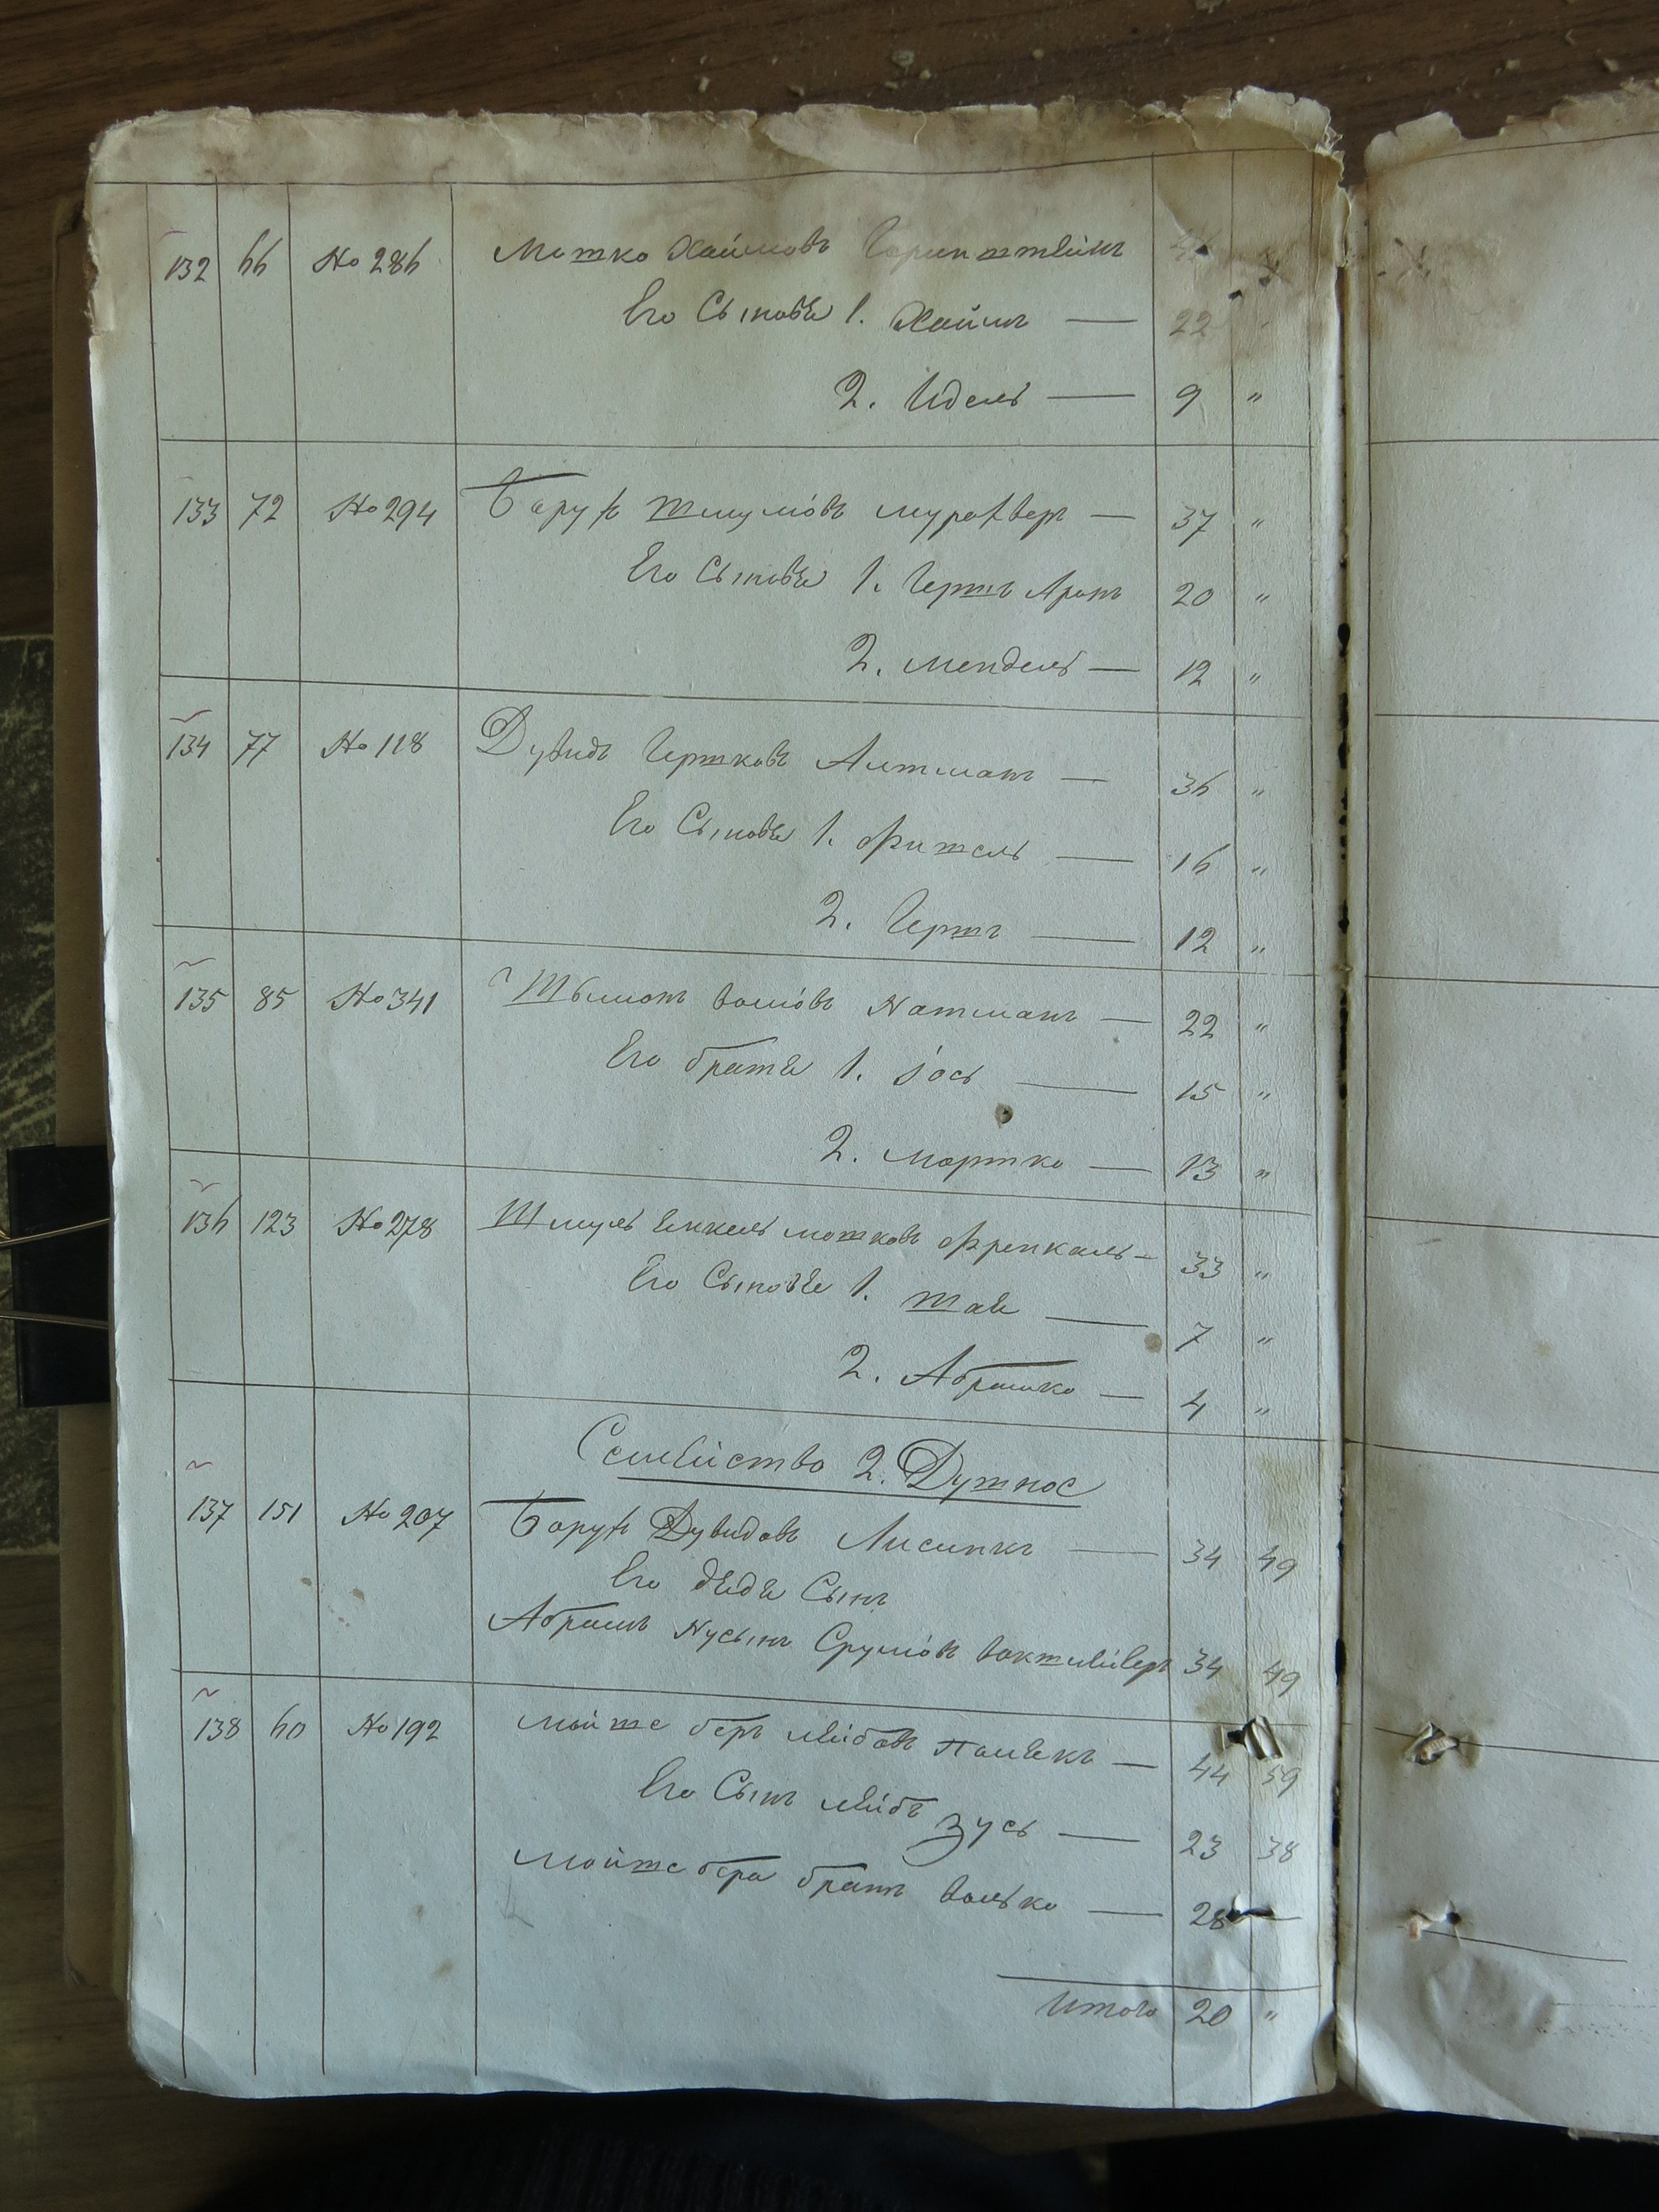 132 66 № 286 Мотко Хаимовъ Горинштейнъ
Его Сыновья 1. Хаимъ — 22
2. Идель — 9 "
133 72 № 294 Барух Шмулiовъ Мурафверъ — 37 "
Его Сыновья 1. Гершъ Аронъ 20 "
2. Мендель — 12 "
134 77 № 118 Дувидъ Гершковъ Алтманъ — 36 "
Его Сыновья 1. Фишель — 16 "
2. Гершъ — 12 "
135 85 № 341 Шљома Волiовъ Натманъ — 22 "
Его братья 1. Iось — 15 "
2. Мортко — 13 "
136 123 № 278 Шмуль Янкель Мошковъ Френкель — 33 "
Его Сыновья 1. Шая — 7 "
2. Абрашко — 4 "
Семейство 2. Душное
137 151 № 207 Барух Дувидовъ Лисинкъ — 34 49
Его дяди Сынъ
Абрамъ Нусынъ Срулiовъ 34 49
138 60 № 192 Мойше беръ Лейбовъ — 44 59
Его Сынъ Лейбъ Зусь — 23 38
Мойше бера братъ Волько — 28 —
Итого 20 "